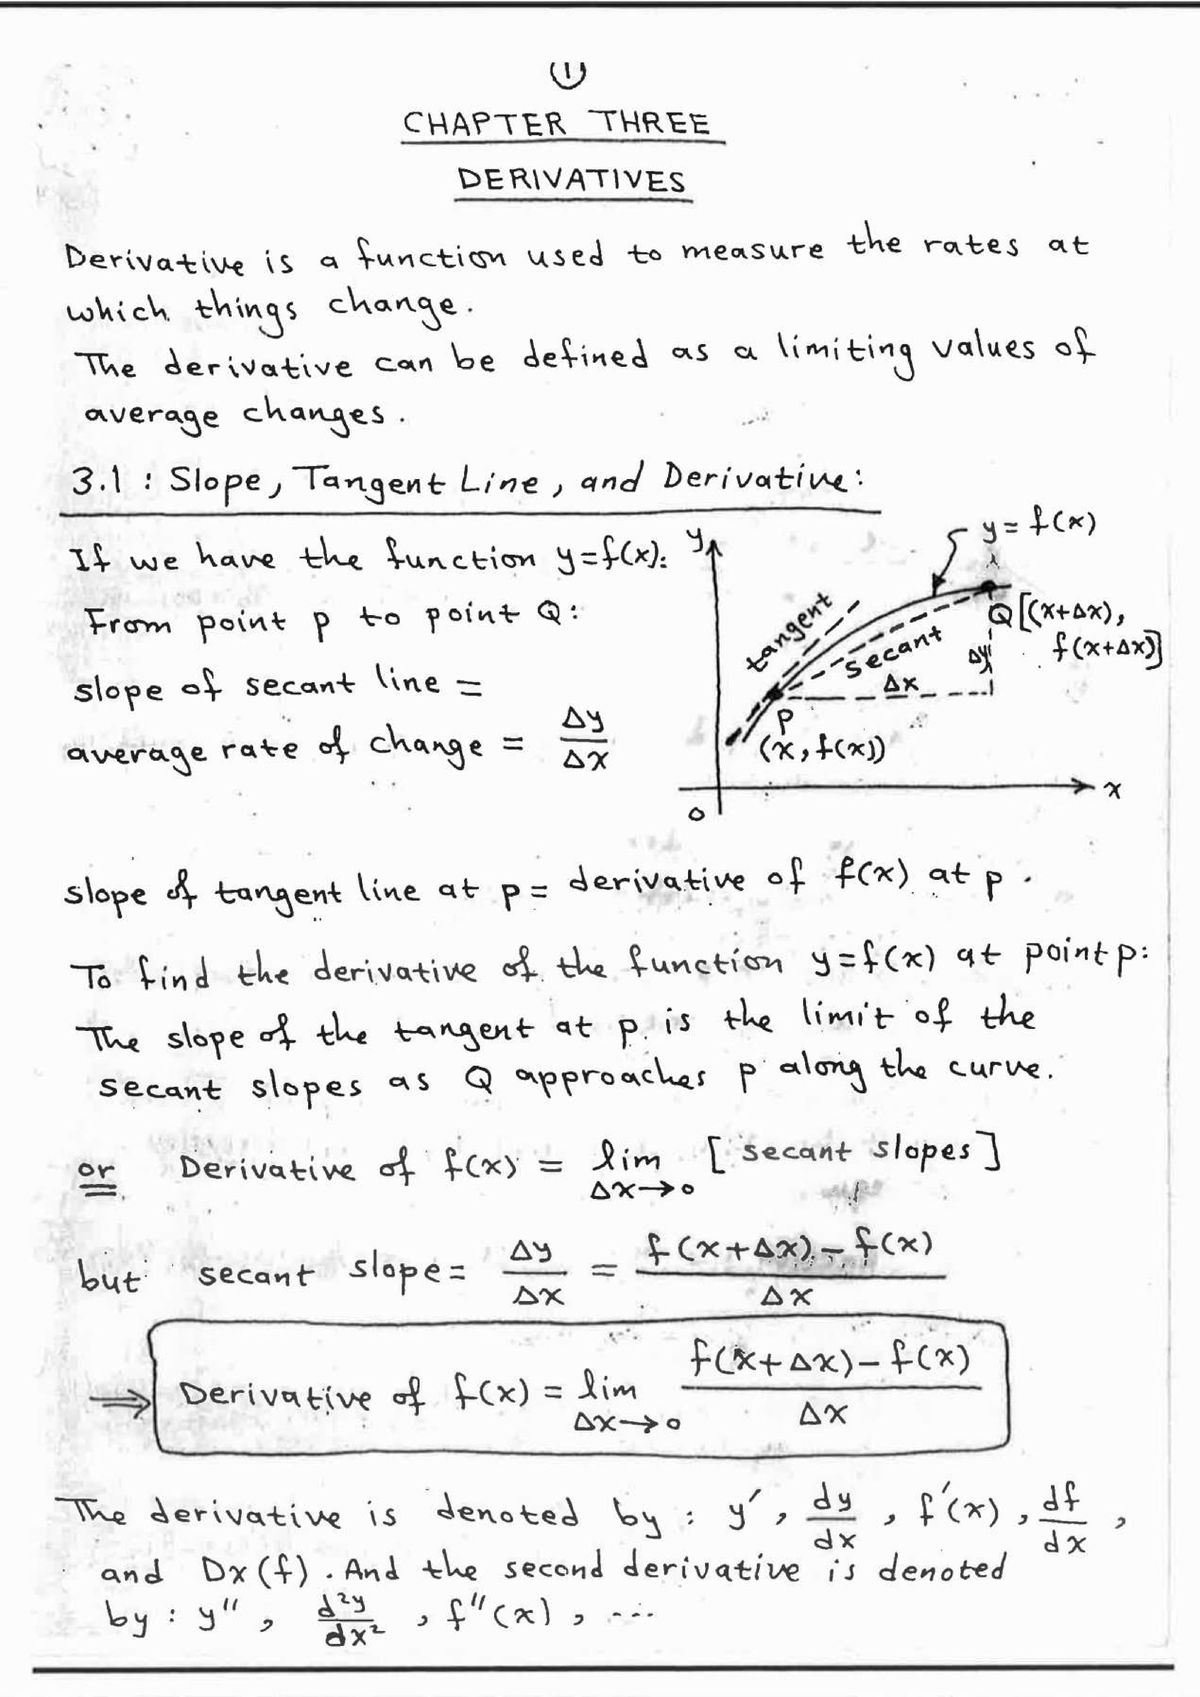 (1)
CHAPTER THREE
DERIVATIVES
Derivative is a function used to measure the rates at
which things change.
The derivative can be defined as a limiting values of
average changes.
3.1 : Slope, Tangent Line, and Derivative:
If we have the function y=f(x):
From point p to point Q:
slope of secant line =
average rate of change = Δy/Δx
y
y = f(x)
tangent
secant
Q[(x+Δx),
f(x+Δx)]
Δy
Δx
P
(x, f(x))
x
0
slope of tangent line at p = derivative of f(x) at p.
To find the derivative of the function y=f(x) at point p:
The slope of the tangent at p is the limit of the
secant slopes as Q approaches p along the curve.
or Derivative of f(x) = lim Δx→0 [secant slopes]
but secant slope = Δy/Δx = (f(x+Δx) - f(x))/Δx
⟹ Derivative of f(x) = lim Δx→0 (f(x+Δx) - f(x))/Δx
The derivative is denoted by : y′, dy/dx, f′(x), df/dx,
and Dx(f). And the second derivative is denoted
by : y″, d²y/dx², f″(x), ....